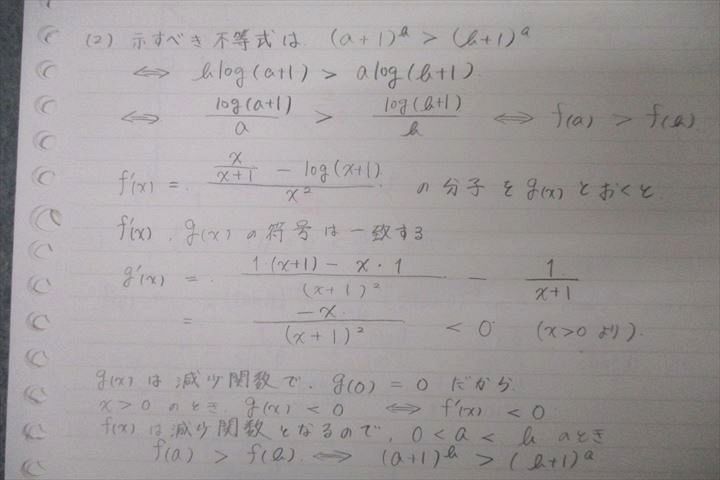 (2) 示すべき不等式は (a+1)^b > (b+1)^a
⇔ b log(a+1) > a log(b+1).
⇔ log(a+1)/a > log(b+1)/b ⇔ f(a) > f(b)
f'(x) = (x/(x+1) - log(x+1))/x² の分子をg(x)とおくと
f'(x), g(x)の符号は一致する
g'(x) = (1·(x+1) - x·1)/(x+1)² - 1/(x+1)
= -x/(x+1)² < 0 (x>0より).
g(x)は減少関数で、g(0) = 0だから
x>0のとき、g(x) < 0 ⇔ f'(x) < 0
f(x)は減少関数となるので、0 < a < b のとき
f(a) > f(b) ⇔ (a+1)^b > (b+1)^a